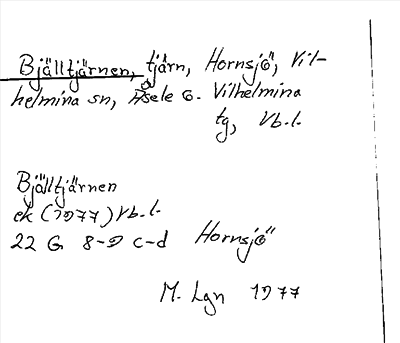 Bjälltjärnen, tjärn, Hornsjö, Vil-
helmina sn, Åsele o. Vilhelmina
tg, Vb.l.
Bjälltjärnen
ek (1977) Vb.l.
22 G 8-9 c-d Hornsjö
M. Lgn 1977